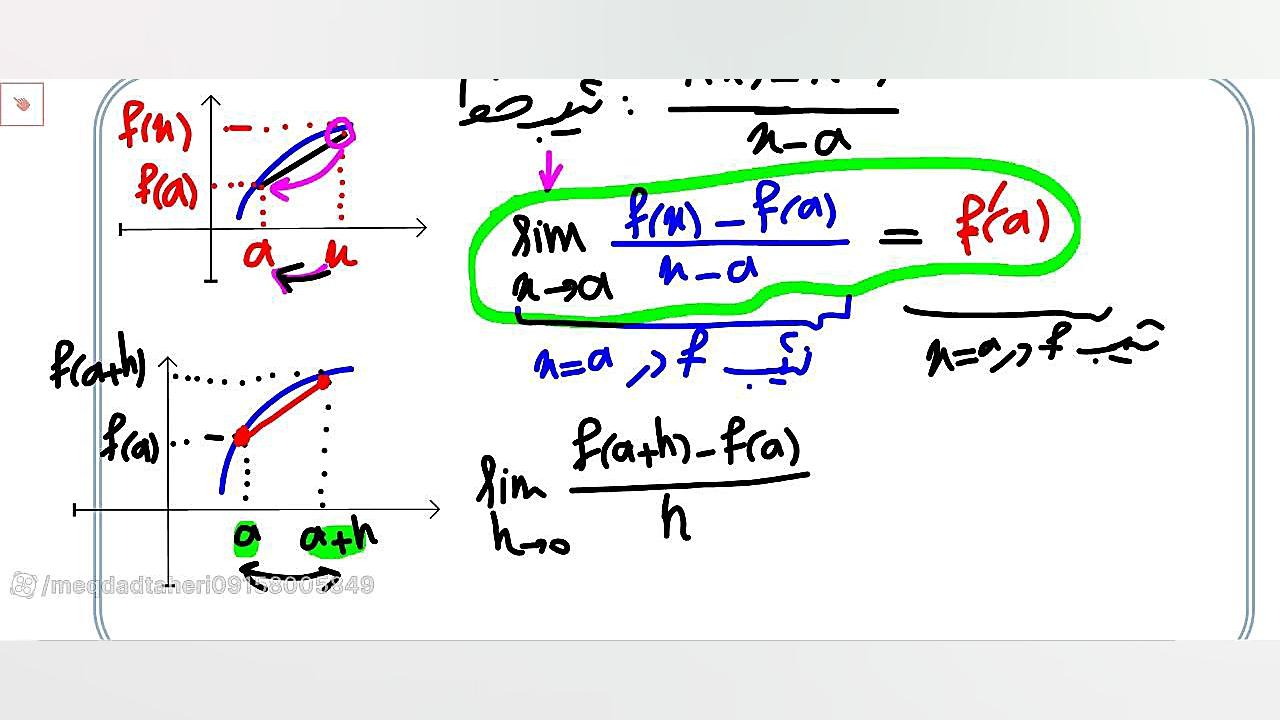 f(x)
f(a)
a x
شیب خط :
x-a
lim f(x) - f(a) = f'(a)
x→a x-a
شیب f در x=a
شیب f در x=a
f(a+h)
f(a)
a a+h
lim f(a+h) - f(a)
h→0 h
/meqdadtaheri09158005849